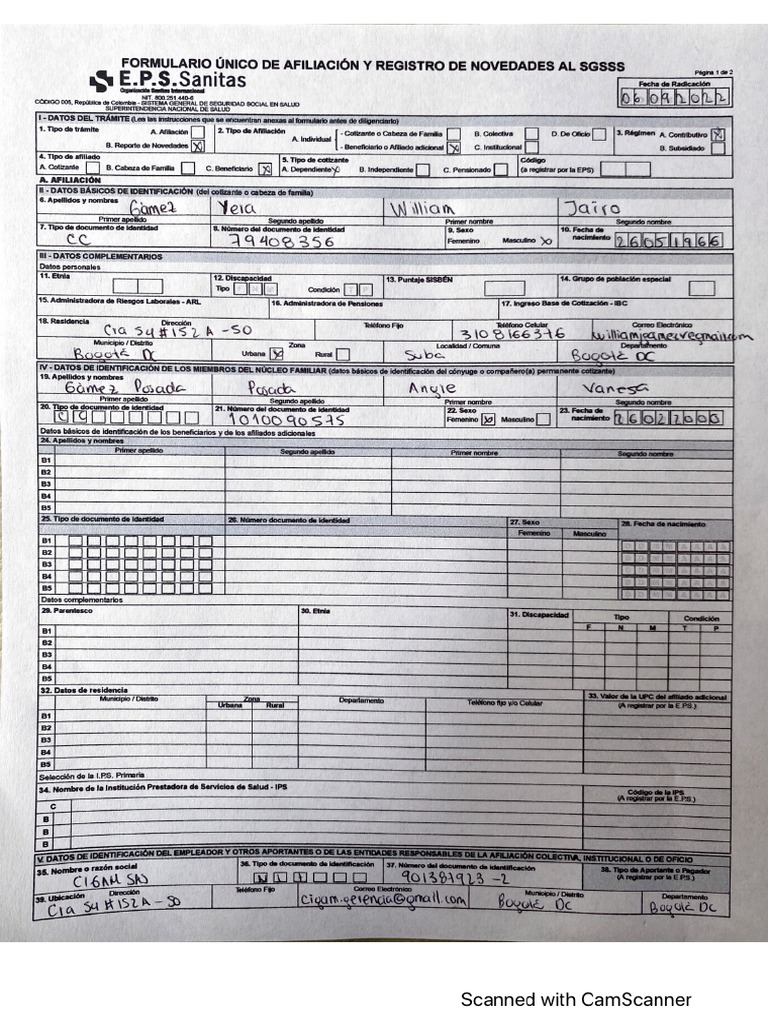 FORMULARIO ÚNICO DE AFILIACIÓN Y REGISTRO DE NOVEDADES AL SGSSS
Página 1 de 2
E.P.S.Sanitas
Organización Sanitas Internacional
NIT. 800.251.440-6
CÓDIGO 005, República de Colombia - SISTEMA GENERAL DE SEGURIDAD SOCIAL EN SALUD
SUPERINTENDENCIA NACIONAL DE SALUD
Fecha de Radicación
06 09 2022
I - DATOS DEL TRÁMITE (Lea las instrucciones que se encuentran anexas al formulario antes de diligenciarlo)
1. Tipo de trámite A. Afiliación B. Reporte de Novedades X
2. Tipo de Afiliación A. Individual - Cotizante o Cabeza de Familia - Beneficiario o Afiliado adicional X B. Colectiva C. Institucional D. De Oficio
3. Régimen A. Contributivo X B. Subsidiado
4. Tipo de afiliado A. Cotizante B. Cabeza de Familia C. Beneficiario X
5. Tipo de cotizante A. Dependiente X B. Independiente C. Pensionado
Código (a registrar por la EPS)
A. AFILIACIÓN
II - DATOS BÁSICOS DE IDENTIFICACIÓN (del cotizante o cabeza de familia)
6. Apellidos y nombres
Gómez Vera William Jairo
Primer apellido Segundo apellido Primer nombre Segundo nombre
7. Tipo de documento de identidad 8. Número del documento de identidad 9. Sexo 10. Fecha de nacimiento
CC 79408356 Femenino Masculino X 26051966
III - DATOS COMPLEMENTARIOS
Datos personales
11. Etnia 12. Discapacidad Tipo F N M Condición T P 13. Puntaje SISBÉN 14. Grupo de población especial
15. Administradora de Riesgos Laborales - ARL 16. Administradora de Pensiones 17. Ingreso Base de Cotización - IBC
18. Residencia Dirección Teléfono Fijo Teléfono Celular Correo Electrónico
Cra 54 # 152 A - 50 3108166376 williamjgamezv@gmail.com
Municipio / Distrito Zona Localidad / Comuna Departamento
Bogotá DC Urbana X Rural Suba Bogotá DC
IV - DATOS DE IDENTIFICACIÓN DE LOS MIEMBROS DEL NÚCLEO FAMILIAR (datos básicos de identificación del cónyuge o compañero(a) permanente cotizante)
19. Apellidos y nombres
Gómez Posada Posada Angie Vanesa
Primer apellido Segundo apellido Primer nombre Segundo nombre
20. Tipo de documento de identidad 21. Número del documento de identidad 22. Sexo 23. Fecha de nacimiento
CC 1010090575 Femenino X Masculino 26022000
Datos básicos de identificación de los beneficiarios y de los afiliados adicionales
24. Apellidos y nombres
Primer apellido Segundo apellido Primer nombre Segundo nombre
B1
B2
B3
B4
B5
25. Tipo de documento de identidad 26. Número documento de identidad 27. Sexo 28. Fecha de nacimiento
Femenino Masculino
B1
B2
B3
B4
B5
Datos complementarios
29. Parentesco 30. Etnia 31. Discapacidad Tipo Condición
F N M T P
B1
B2
B3
B4
B5
32. Datos de residencia
Municipio / Distrito Zona Departamento Teléfono fijo y/o Celular 33. Valor de la UPC del afiliado adicional
Urbana Rural (A registrar por la E.P.S.)
B1
B2
B3
B4
B5
Selección de la I.P.S. Primaria
34. Nombre de la Institución Prestadora de Servicios de Salud - IPS Código de la IPS
(A registrar por la E.P.S.)
C
B
B
B
V. DATOS DE IDENTIFICACIÓN DEL EMPLEADOR Y OTROS APORTANTES O DE LAS ENTIDADES RESPONSABLES DE LA AFILIACIÓN COLECTIVA, INSTITUCIONAL O DE OFICIO
35. Nombre o razón social 36. Tipo de documento de identificación 37. Número del documento de identificación 38. Tipo de Aportante o Pagador
(A registrar por la E.P.S.)
CIGAM SAS NIT 901387923-2
39. Ubicación Dirección Teléfono Fijo Correo Electrónico Municipio / Distrito Departamento
Cra 54 # 152 A - 50 cigam.gerencia@gmail.com Bogotá DC Bogotá DC
Scanned with CamScanner